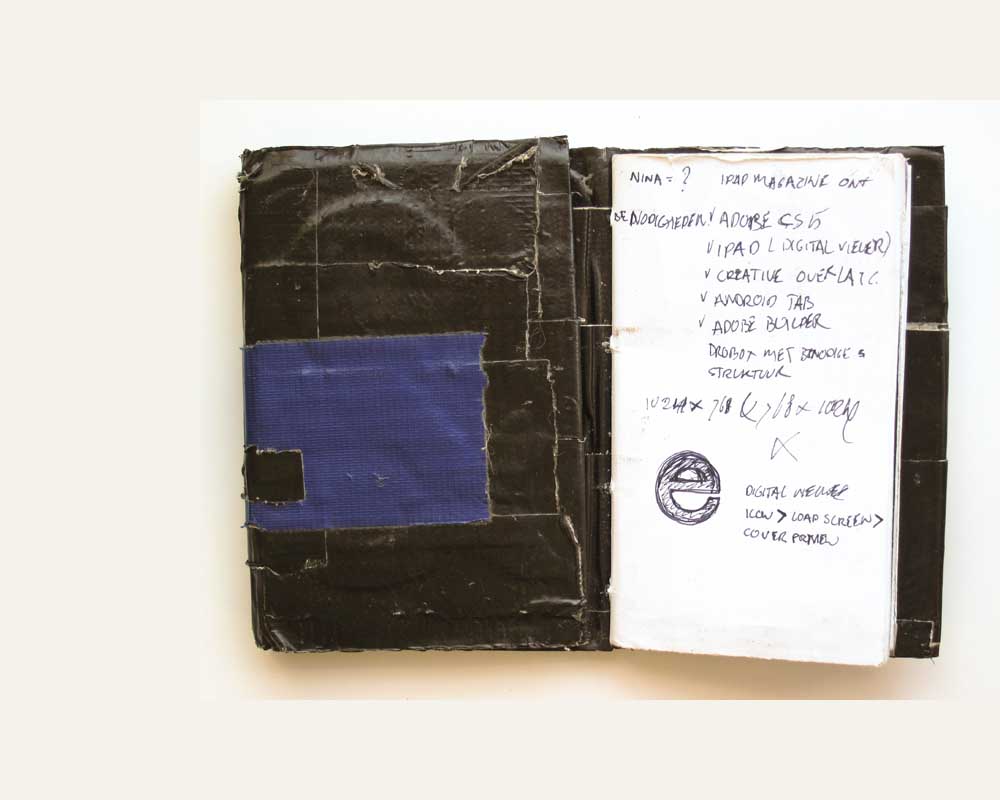 NINA = ? IPAD MAGAZINE ONT
BENODIGHEDEN: √ ADOBE CS5
√ IPAD (DIGITAL VIEWER)
√ CREATIVE
√ ANDROID TAB
√ ADOBE BUILDER
DROBOX MET
STRUKTUUR
1024 x 768 (768 x 1024)
e
DIGITAL
ICON > LOAD SCREEN >
COVER